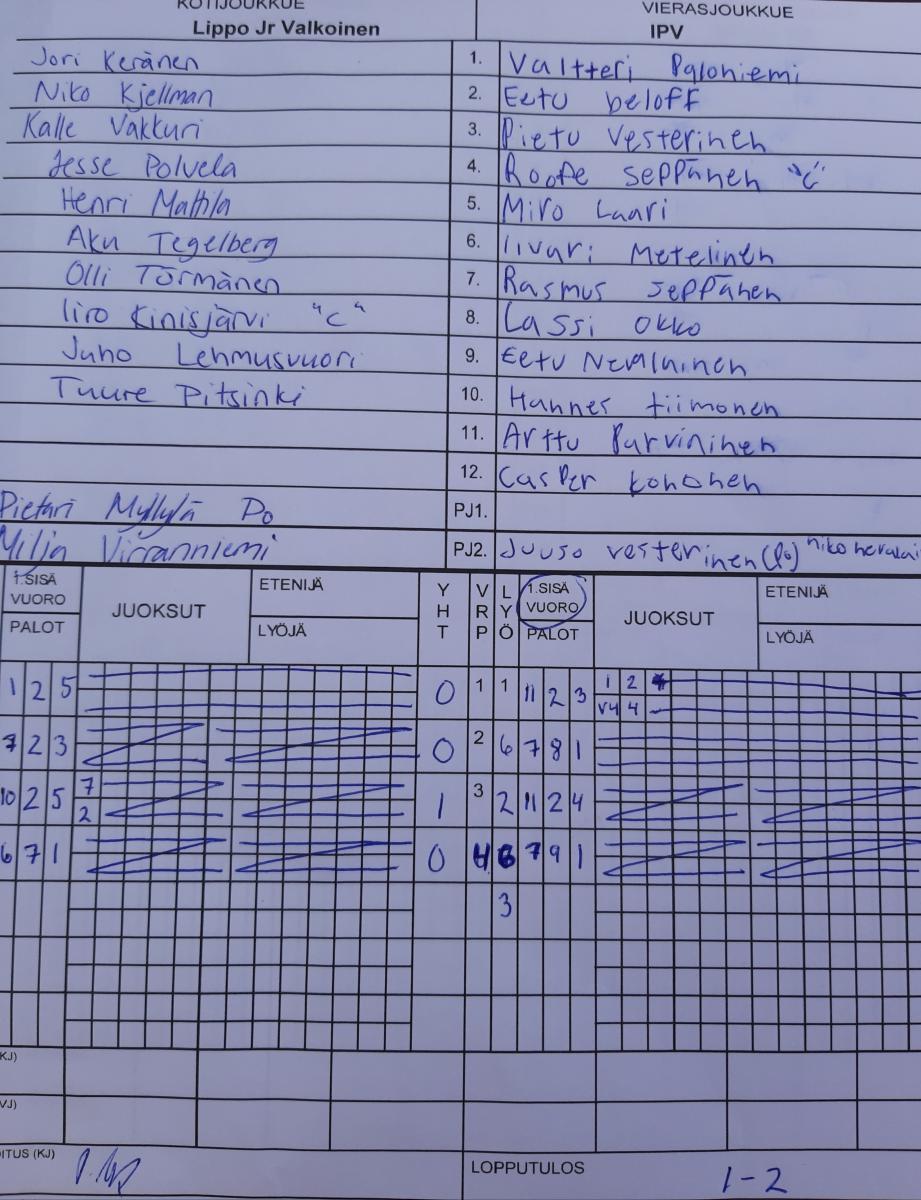 KOTIJOUKKUE VIERASJOUKKUE
Lippo Jr Valkoinen IPV
Jori Keränen 1. Valtteri Paloniemi
Niko Kjellman 2. Eetu beloff
Kalle Vakkuri 3. Pietu Vesterinen
Jesse Polvela 4. Roope Seppänen "C"
Henri Mattila 5. Miro Laari
Aku Tegelberg 6. Iivari Metelinen
Olli Törmänen 7. Rasmus Seppänen
Iiro Kinisjärvi "C" 8. Lassi Okko
Juho Lehmusvuori 9. Eetu Nevalainen
Tuure Pitsinki 10. Hannes Tiimonen
11. Arttu Parvininen
12. Casper Kohonen
Pietari Myllylä Po PJ1.
Milja Virranniemi PJ2. Juuso Vesterinen (Po) niko
1.SISÄ VUORO JUOKSUT ETENIJÄ YHT VRP LYÖ 1.SISÄ VUORO JUOKSUT ETENIJÄ
PALOT LYÖJÄ PALOT LYÖJÄ
1 2 5 0 1 1 11 2 3 1 2
V4 4
7 2 3 0 2 6 7 8 1
10 2 5 7 1 3 2 11 2 4
2
6 7 1 0 4 6 7 9 1
3
KJ)
VJ)
OITUS (KJ) LOPPUTULOS 1-2